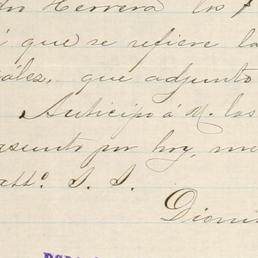 Herrera los
que se refiere la
ález, que adjunto
Anticipo á V. las
asunto por hoy, me
atto. S. S.
Dioni